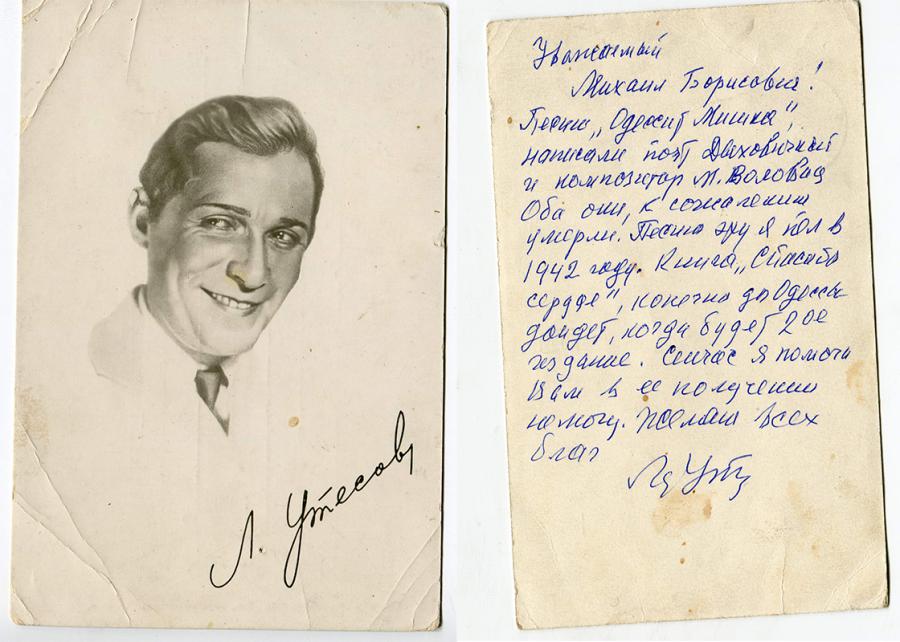 Л. Утесов
Уважаемый
Михаил Борисович!
Песню „Одессит Мишка"
написали поэт Дыховичный
и композитор М. Воловац
Оба они, к сожалению
умерли. Песню эту я пел в
1942 году. Книга „Спасибо
сердце", конечно до Одессы
дойдет, когда будет 2ое
издание. Сейчас я помочь
Вам в ее получении
не могу. Желаю всех
благ